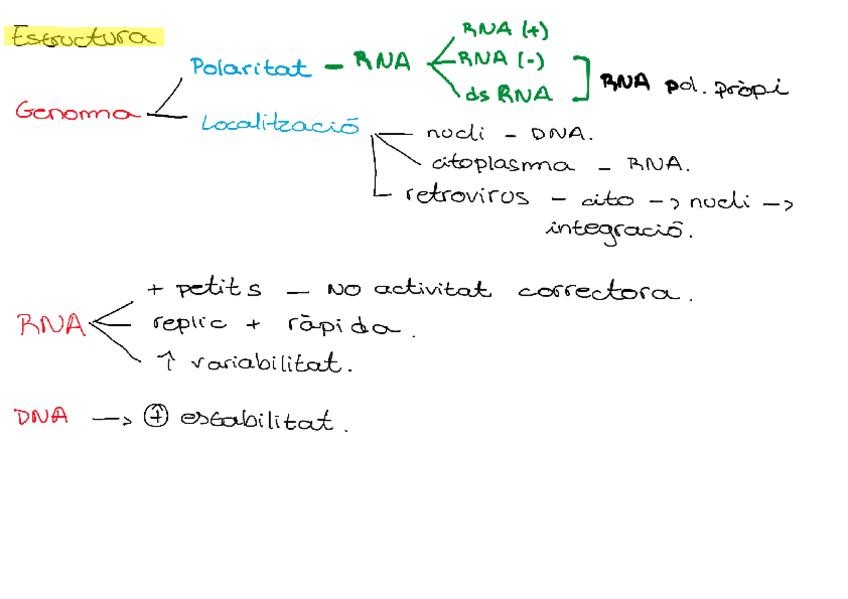 Estructura
RNA (+)
Polaritat - RNA RNA (-)
ds RNA RNA pol. pròpi
Genoma
Localització nucli - DNA.
citoplasma - RNA.
retrovirus - cito -> nucli ->
integració.
+ petits - NO activitat correctora.
RNA replic + ràpida.
↑ variabilitat.
DNA -> ⊕ estabilitat.